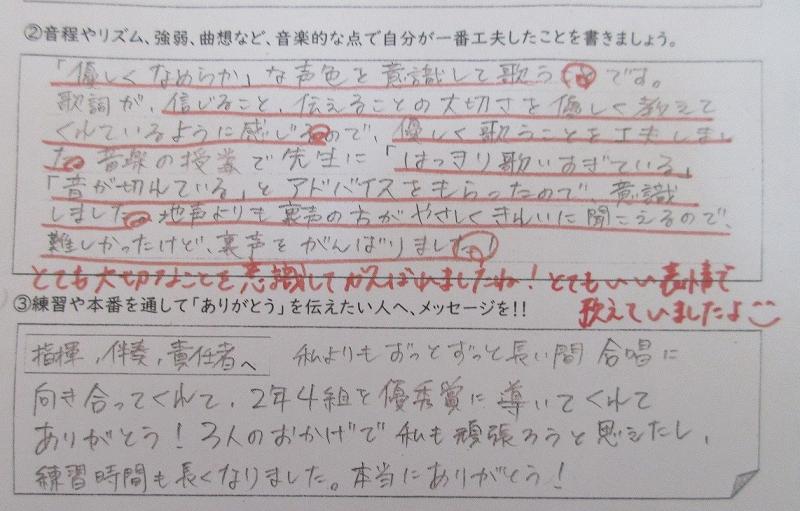 ②音程やリズム、強弱、曲想など、音楽的な点で自分が一番工夫したことを書きましょう。
「優しくなめらか」な声色を意識して歌うことです。
歌詞が、信じること、伝えることの大切さを優しく教えて
くれているように感じるので、優しく歌うことを工夫しまし
た。音楽の授業で先生に「はっきり歌いすぎている」
「音が切れている」とアドバイスをもらったので、意識
しました。地声よりも裏声の方がやさしくきれいに聞こえるので、
難しかったけど、裏声をがんばりました!
とても大切なことを意識してがんばれましたね!とてもいい表情で
歌えていましたよ
③練習や本番を通して「ありがとう」を伝えたい人へ、メッセージを!!
指揮,伴奏,責任者へ 私よりもずっとずっと長い間合唱に
向き合ってくれて、2年4組を優秀賞に導いてくれて
ありがとう!3人のおかげで私も頑張ろうと思えたし、
練習時間も長くなりました。本当にありがとう!